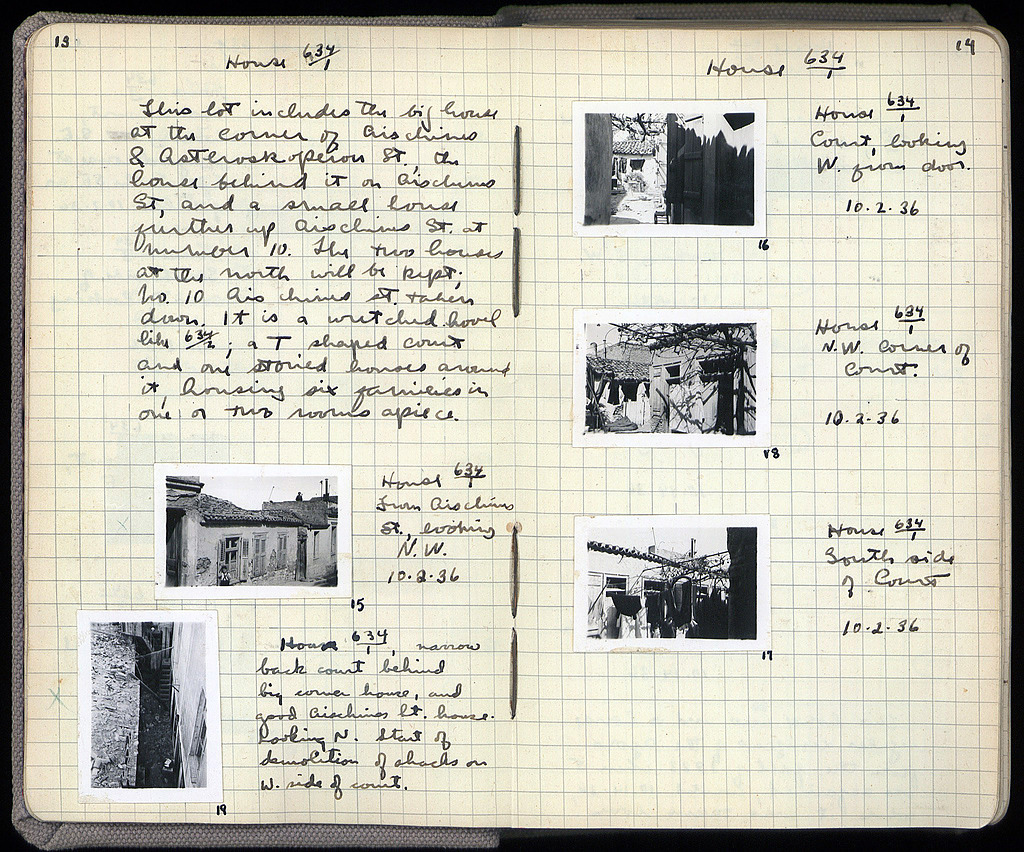 13
House 634/1
This lot includes the big house
at the corner of Aischines
& Asteroskopeion St., the
house behind it on Aischines
St, and a small house
further up Aischines St. at
number 10. The two houses
at the north will be kept;
No. 10 Aischines St. taken
down. It is a wretched hovel
like 634/2; a T shaped court
and one storied houses around
it, housing six families in
one or two rooms apiece.
House 634/1
From Aischines
St., looking
N.W.
10.2.36
15
House 634/1, narrow
back court behind
big corner house, and
good Aischines St. house.
Looking N. Start of
demolition of shacks on
W. side of court.
19
14
House 634/1
House 634/1
Court, looking
W. from door.
10.2.36
16
House 634/1
N.W. Corner of
Court.
10.2.36
18
House 634/1
South side
of Court
10.2.36
17